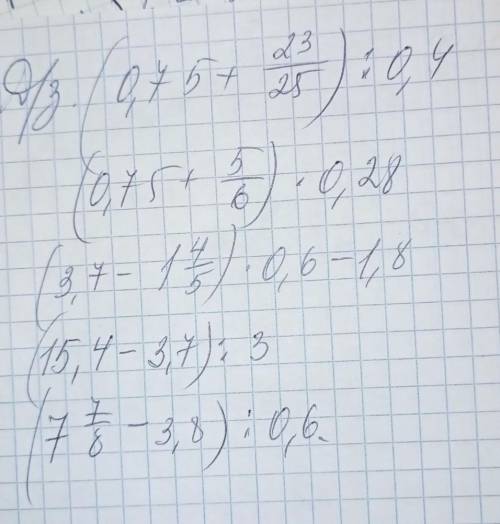 Д/з. (0,75 + 23/25) : 0,4
(0,75 + 5/6) · 0,28
(3,7 - 1 4/5) · 0,6 - 1,8
(15,4 - 3,7) : 3
(7 7/8 - 3,8) : 0,6.